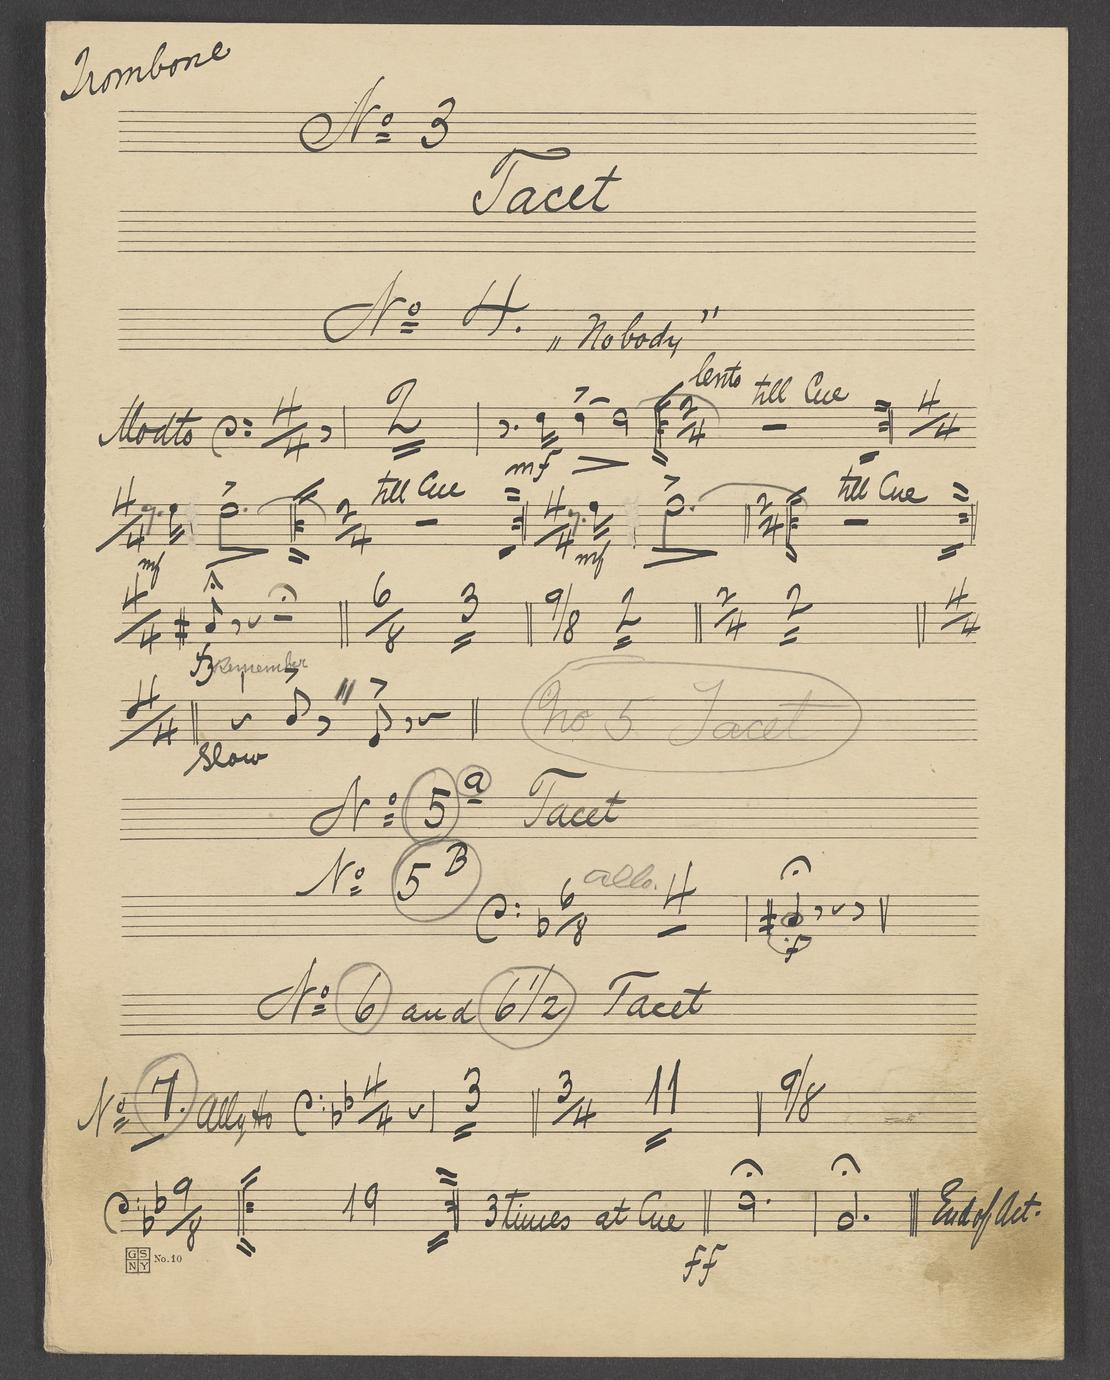 Trombone
No 3
Tacet
No 4. „Nobody"
lento till Cue
Modto 4/4 2 2/4 4/4
mf
till Cue till Cue
4/4 2/4 4/4 2/4
mf mf
4/4 6/8 3 9/8 2 2/4 2 4/4
Remember
4/4 No 5 Tacet
Slow
No 5a Tacet
No 5B
6/8 allo. 4
f
No 6 and 6 1/2 Tacet
No 7. Allgtto 4/4 3 3/4 11 9/8
9/8 19 3 times at Cue End of Act.
ff
GSNY No. 10